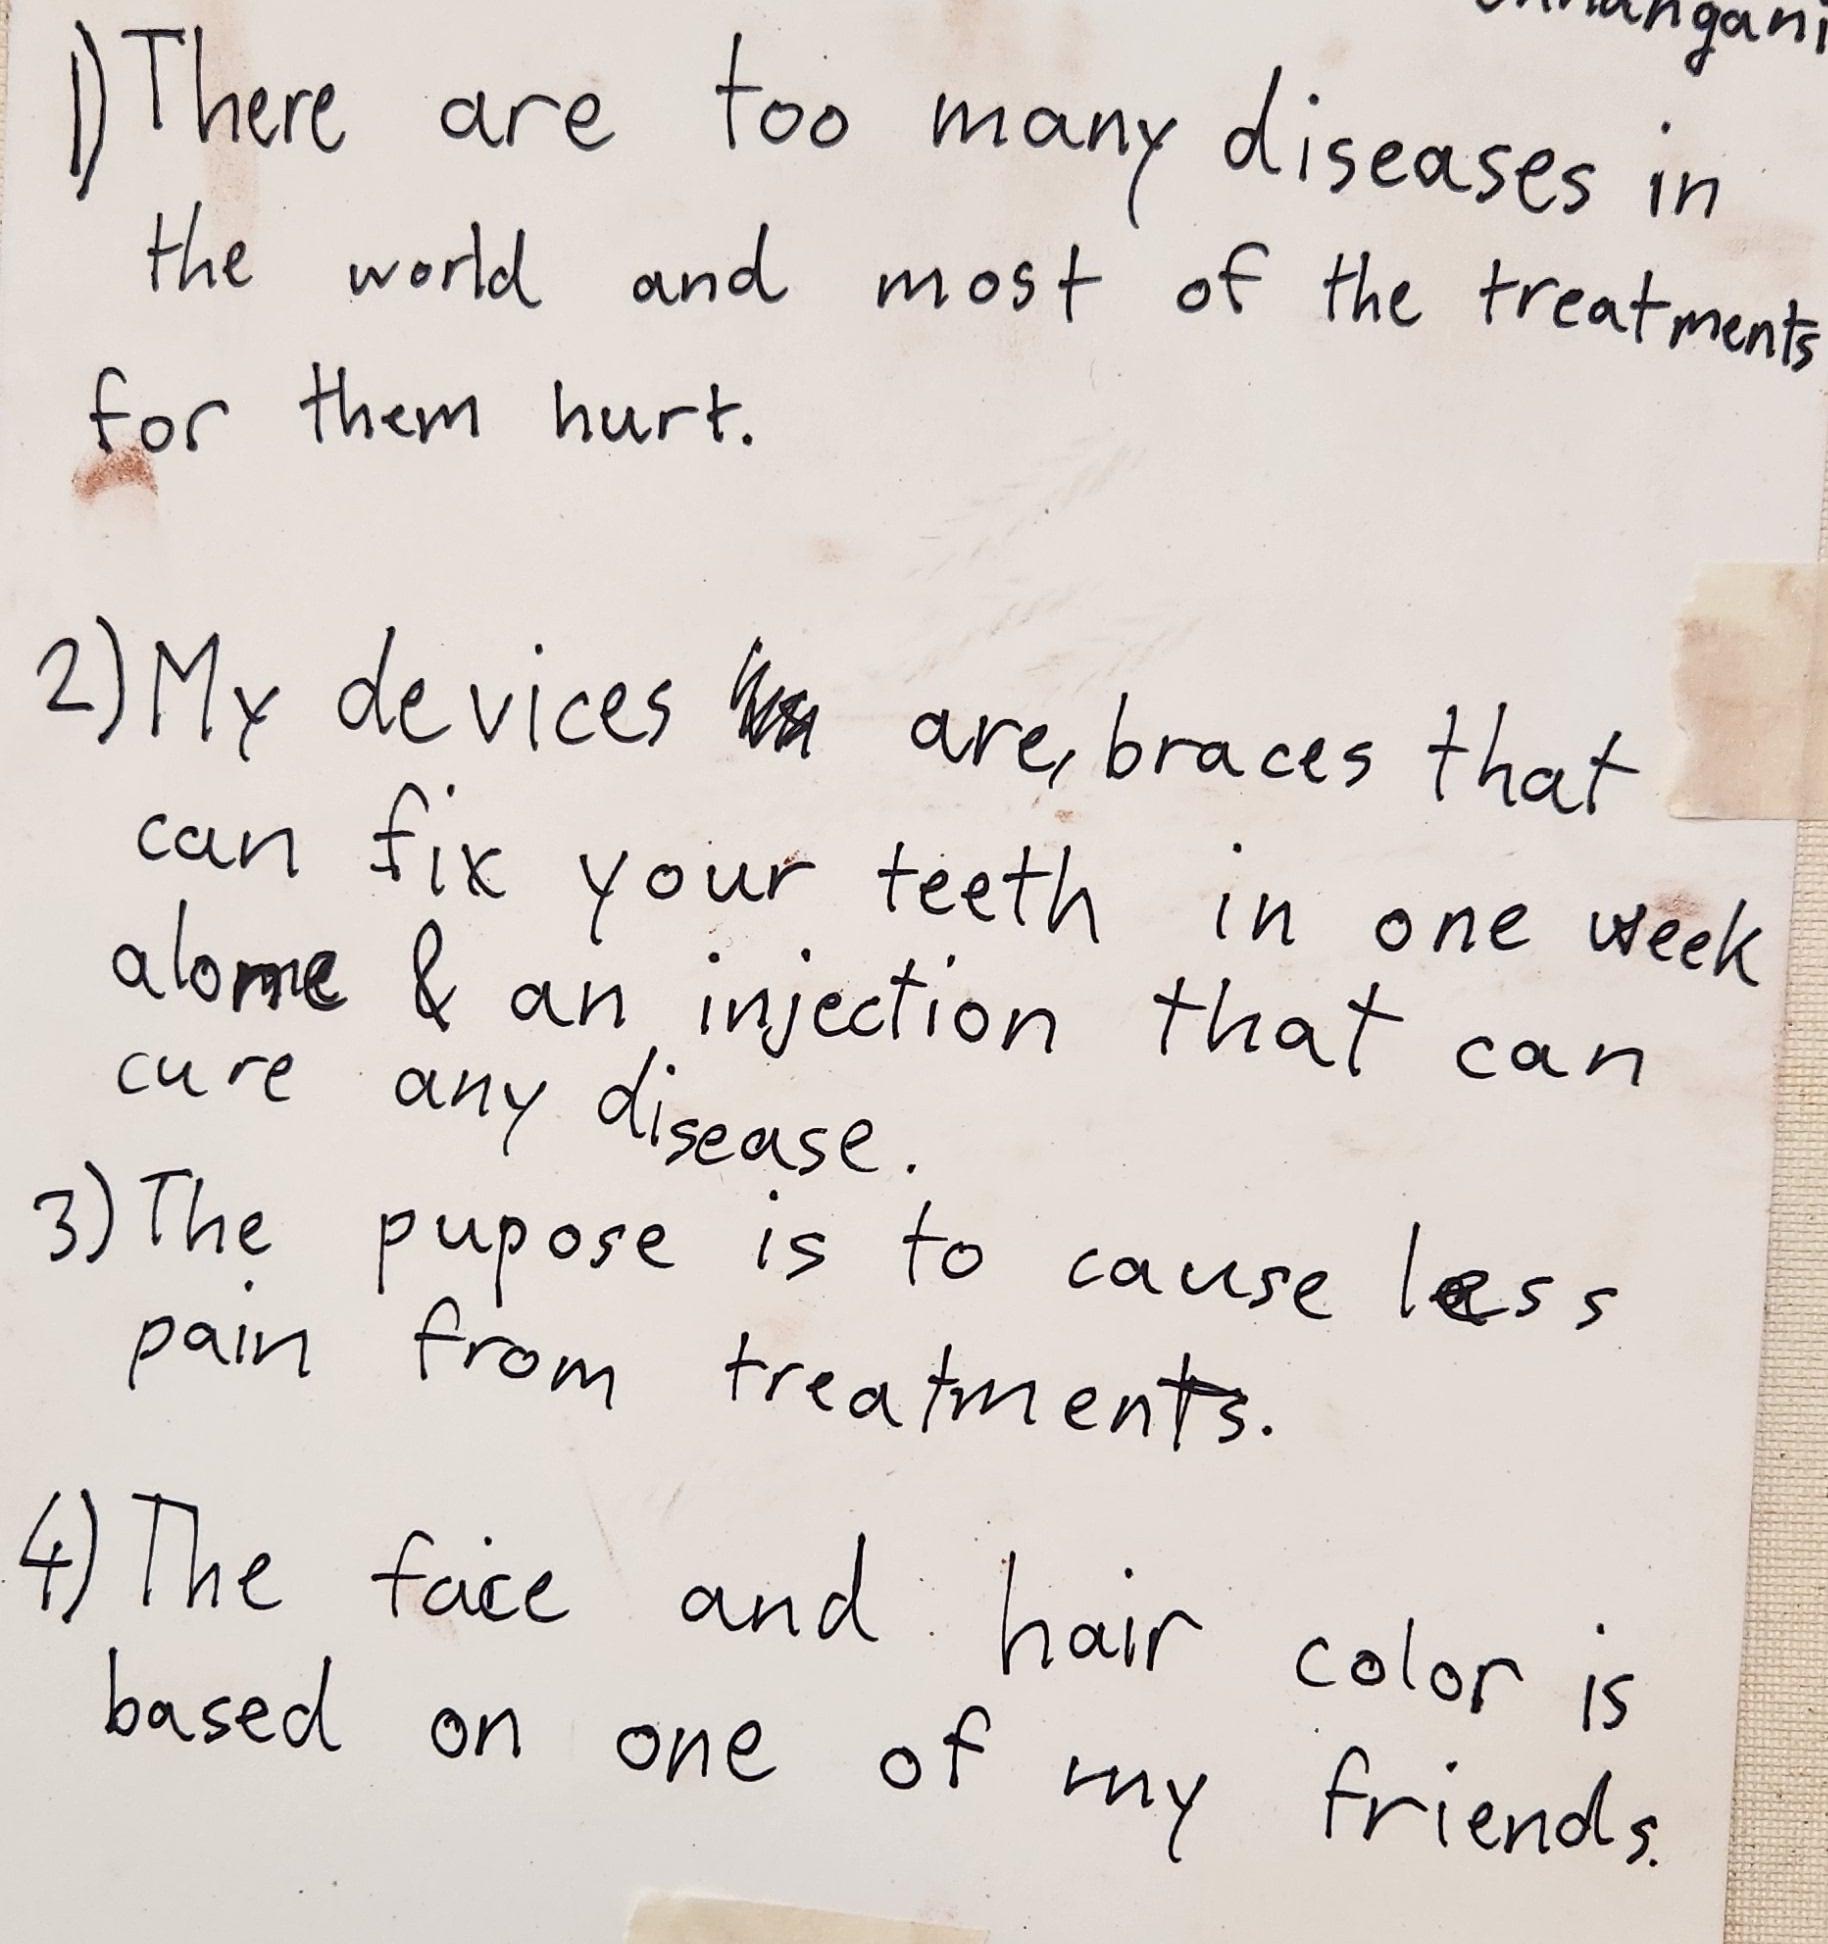 1) There are too many diseases in
the world and most of the treatments
for them hurt.
2) My devices are, braces that
can fix your teeth in one week
alone & an injection that can
cure any disease.
3) The pupose is to cause less
pain from treatments.
4) The face and hair color is
based on one of my friends.